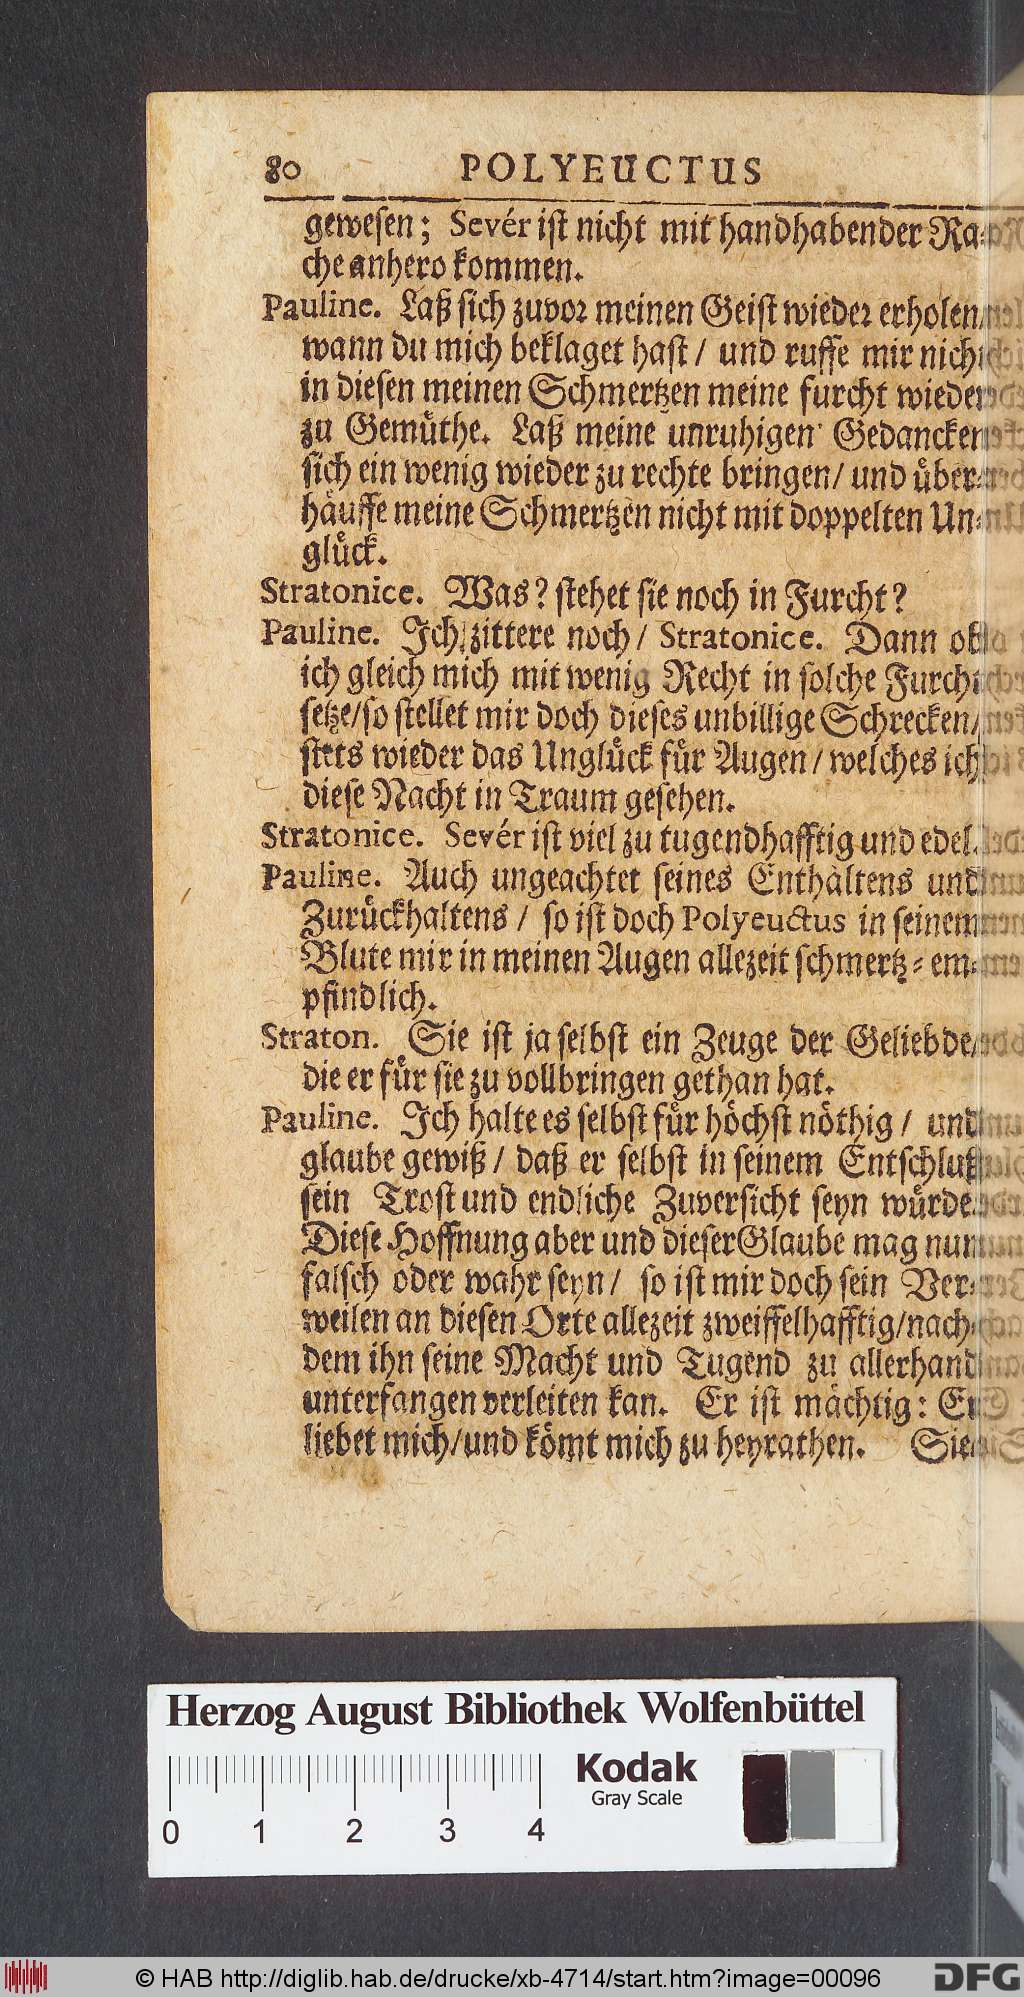 80 POLYEUCTUS
gewesen; Sevér ist nicht mit handhabender Ra-
che anhero kommen.
Pauline. Laß sich zuvor meinen Geist wieder erholen/
wann du mich beklaget hast / und ruffe mir nicht
in diesen meinen Schmertzen meine furcht wieder
zu Gemuͤthe. Laß meine unruhigen Gedancken
sich ein wenig wieder zu rechte bringen/ und uͤber-
haͤuffe meine Schmertzen nicht mit doppelten Un-
gluͤck.
Stratonice. Was? stehet sie noch in Furcht?
Pauline. Ich zittere noch/ Stratonice. Dann ob
ich gleich mich mit wenig Recht in solche Furcht
setze/so stellet mir doch dieses unbillige Schrecken/
stets wieder das Ungluͤck fuͤr Augen/welches ich
diese Nacht in Traum gesehen.
Stratonice. Sevér ist viel zu tugendhafftig und edel.
Pauline. Auch ungeachtet seines Enthaltens und
Zuruͤckhaltens / so ist doch Polyeuctus in seinem
Blute mir in meinen Augen allezeit schmertz-em-
pfindlich.
Straton. Sie ist ja selbst ein Zeuge der Geliebde/
die er fuͤr sie zu vollbringen gethan hat.
Pauline. Ich halte es selbst fuͤr hoͤchst noͤthig / und
glaube gewiß / daß er selbst in seinem Entschluß
sein Trost und endliche Zuversicht seyn wuͤrde.
Diese Hoffnung aber und dieser Glaube mag nun
falsch oder wahr seyn/ so ist mir doch sein Ver-
weilen an diesen Orte allezeit zweiffelhafftig/nach-
dem ihn seine Macht und Tugend zu allerhand
unterfangen verleiten kan. Er ist maͤchtig: Er
liebet mich/und koͤmt mich zu heyrathen. Sie
Herzog August Bibliothek Wolfenbüttel
Kodak
Gray Scale
0 1 2 3 4
© HAB http://diglib.hab.de/drucke/xb-4714/start.htm?image=00096
DFG